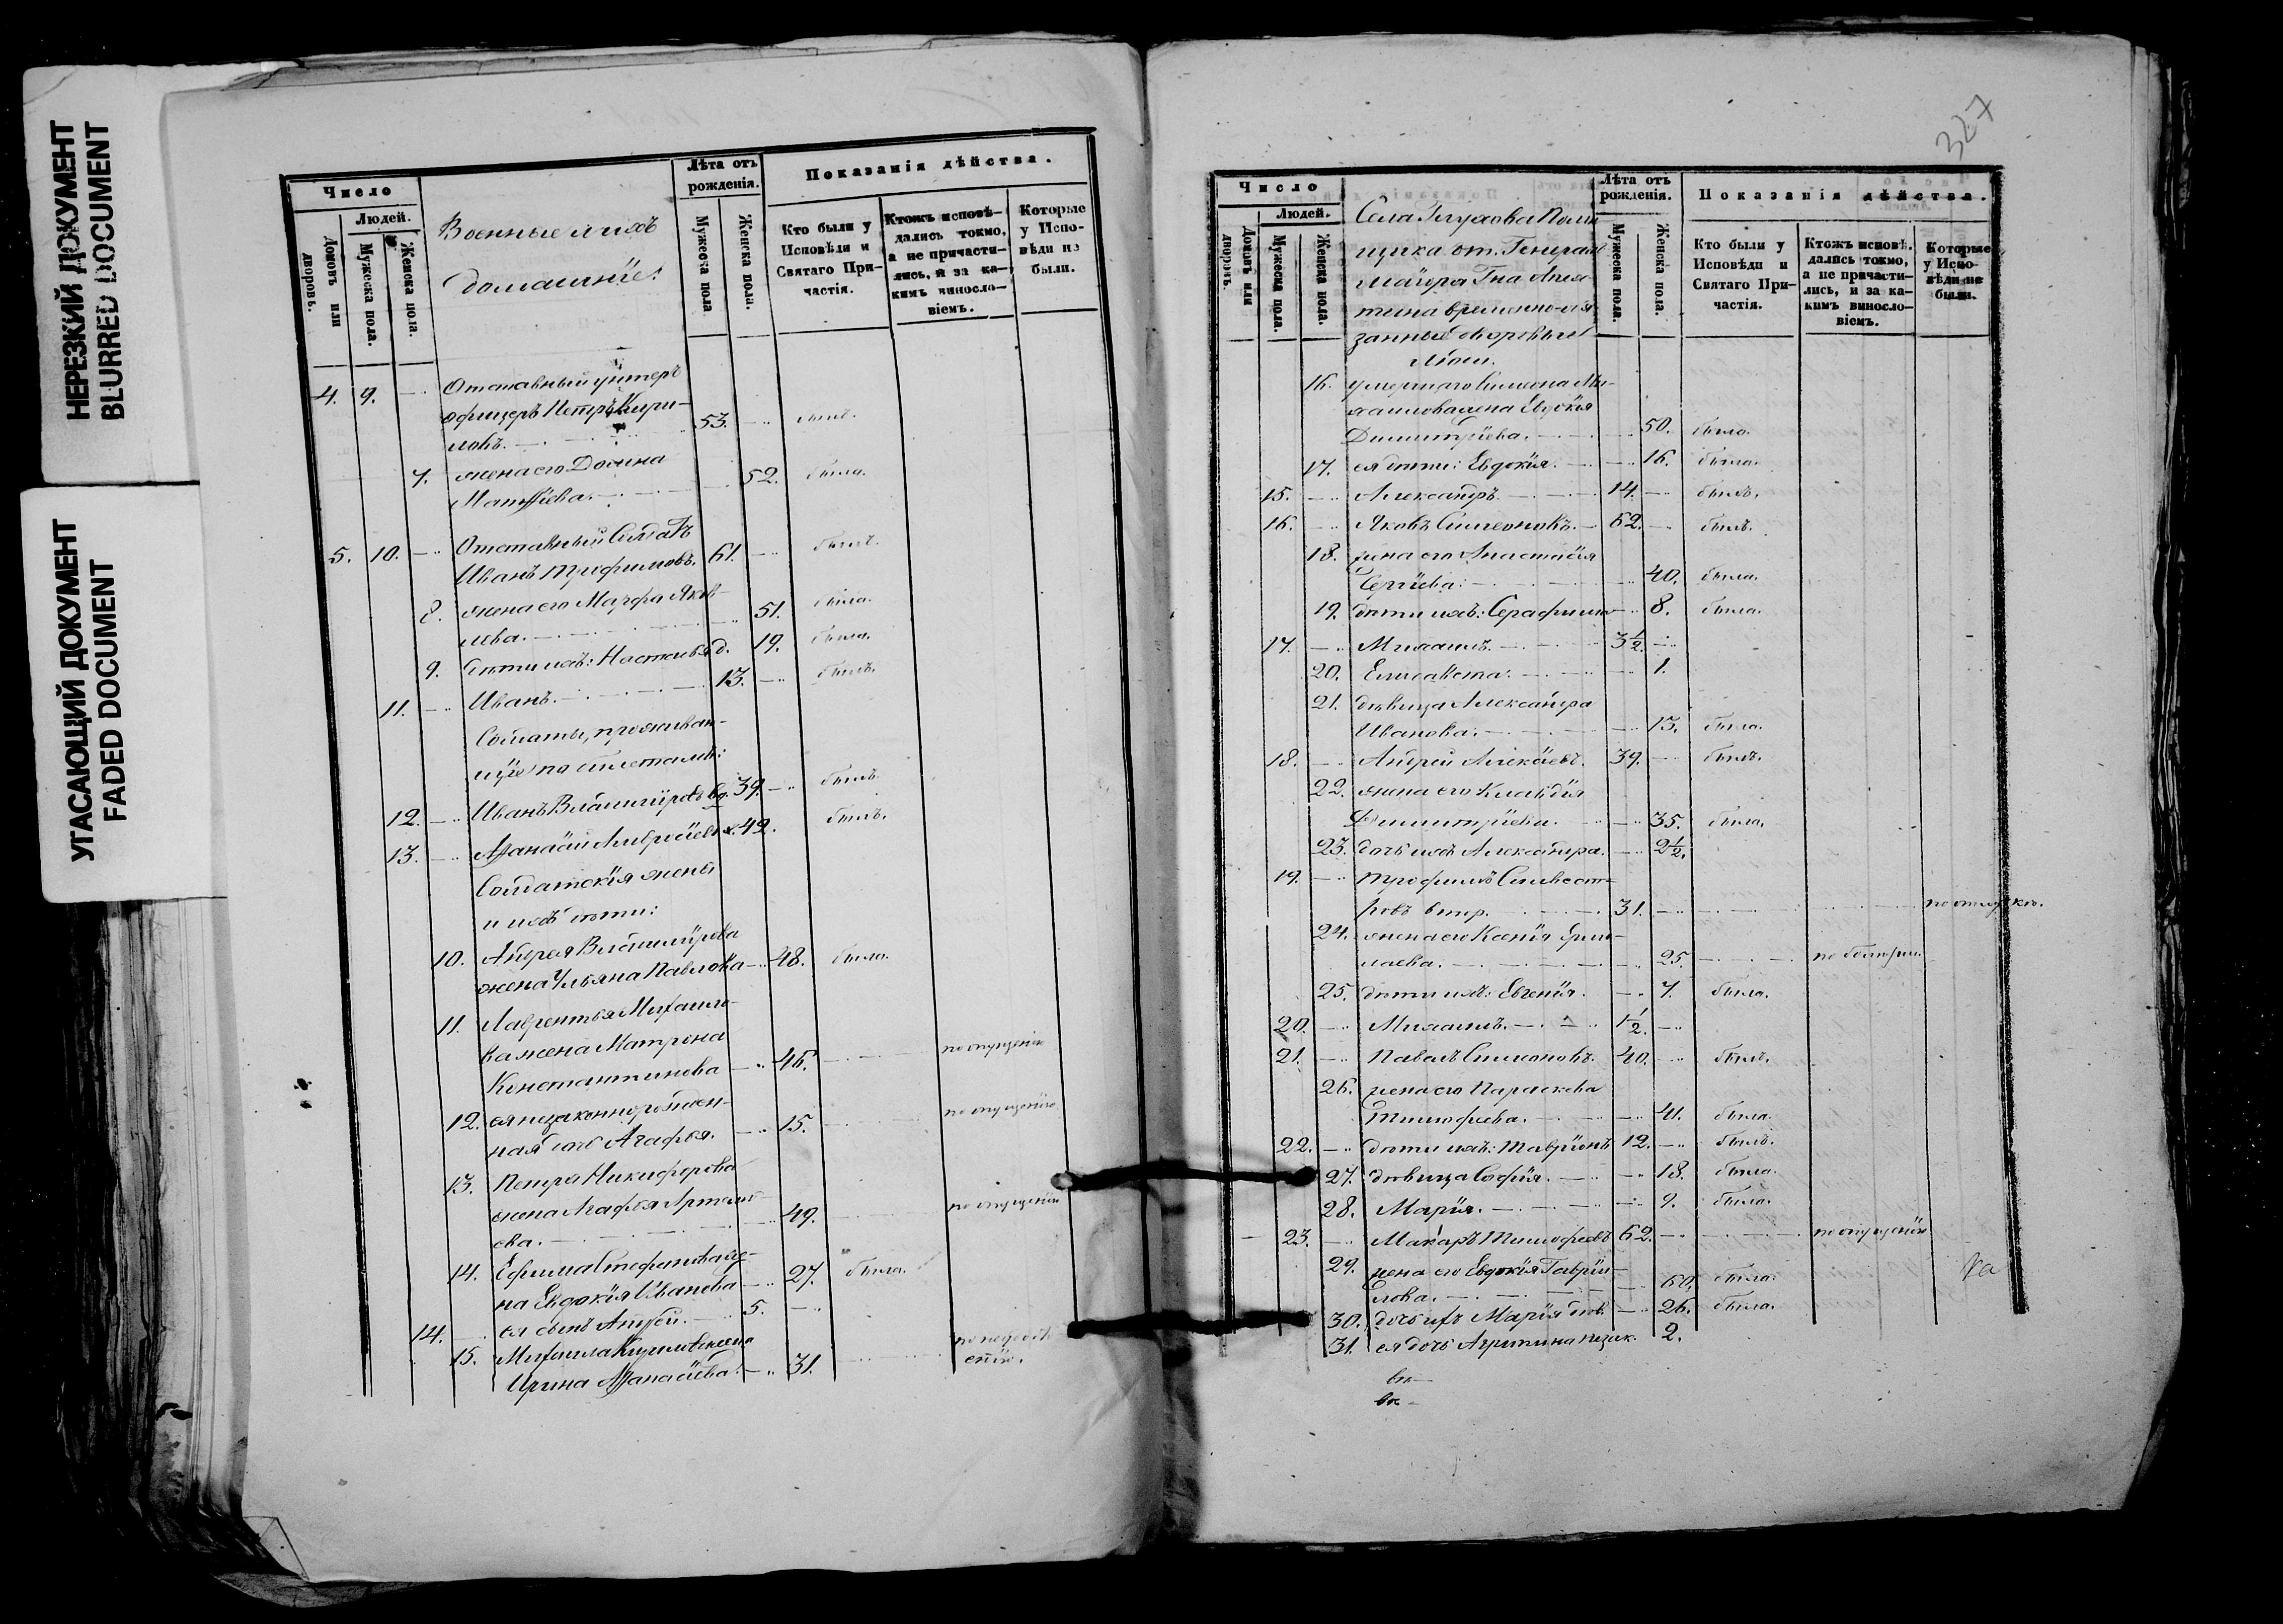 НЕРЕЗКИЙ ДОКУМЕНТ
BLURRED DOCUMENT
УГАСАЮЩИЙ ДОКУМЕНТ
FADED DOCUMENT
Число
Людей.
Домовъ или дворовъ.
Мужеска пола.
Женска пола.
Военные и ихъ
домашніе:
Лѣта отъ рожденія.
Мужеска пола
Женска пола.
Показанія дѣйства.
Кто были у Исповѣди и Святаго Причастія.
Ктожъ исповѣдались токмо, а не причастились, и за какимъ винословіемъ.
Которые у Исповѣди не были.
4. 9. Отставный унтеръ
офицеръ Петръ Кири-
ловъ. 53. былъ.
7. жена его Домна
Матѳіева. 52. была.
5. 10. Отставный Солдатъ
Иванъ Трофимовъ. 61. былъ.
8. жена его Марѳа Яков-
лева. 51. была.
9. дѣти ихъ: Настасья д. 19. была.
11. Иванъ. 13. былъ.
Солдаты, проживаю-
щіе по билетамъ:
12. Иванъ Владиміровъ вд. 39. былъ.
13. Аѳанасій Амвросіевъ х. 42. былъ.
Солдатскія жены
и ихъ дѣти:
10. Андрея Владимірова
жена Ульяна Павлова 48. была.
11. Лаврентья Михайло-
ва жена Матрона
Константинова 46. по опущенію
12. ея незаконнорожден-
ная дочь Агафья. 15. по опущенію
13. Петра Никифорова
жена Агафья Артемь-
ева. 49. по опущенію
14. Ефима Стефанова же-
на Евдокія Иванова 27. была.
14. ея сынъ Андрей. 5.
15. Михаила Кирилова жена
Ирина Аѳанасіева. 31.
327
Число
Людей.
Домовъ или дворовъ.
Мужеска пола.
Женска пола.
Села Глухова Помѣ
щика от. Генералъ
Маіора Гна
временно-обя
занные дворовые
люди.
Лѣта отъ рожденія.
Мужеска пола.
Женска пола.
Показанія дѣйства.
Кто были у Исповѣди и Святаго Причастія.
Ктожъ исповѣдались токмо, а не причастились, и за какимъ винословіемъ.
Которые у Исповѣди не были.
16. умершаго Симеона Ми-
хаилова жена Евдокія
Димитріева. 50. была.
17. ея дѣти: Евдокія. 16. была.
15. Александръ. 14. былъ.
16. Яковъ Симеоновъ. 62. былъ.
18. жена его Анастасія
Сергіева. 40. была.
19. дѣти ихъ: Серафима 8. была.
17. Михаилъ. 3½.
20. Елисавета. 1.
21. дѣвица Александра
Иванова. 13. была.
18. Андрей Алексіевъ. 39. былъ.
22. жена его Клавдія
Димитріева. 35. была.
23. дочь ихъ Александра. 2½.
19. Трофимъ Сильвест-
ровъ 31. по отлучкѣ.
24. жена его Ксенія Ерми-
лаева. 25. по болѣзни
25. дѣти ихъ: Евгенія. 7. была.
20. Михаилъ. ½.
21. Павелъ Симеоновъ. 40. былъ.
26. жена его Параскева
Тимофеева. 41. была.
22. дѣти ихъ: Гавріилъ 12. былъ.
27. дѣвица Софія. 18. была.
28. Марія. 9. была.
23. Макаръ Тимофеевъ 62. по опущенію
29. жена его Евдокія Гаврии-
лова. 60. была.
30. дочь ихъ Марія 26. была.
31. ея дочь Агрипина незак. 2.